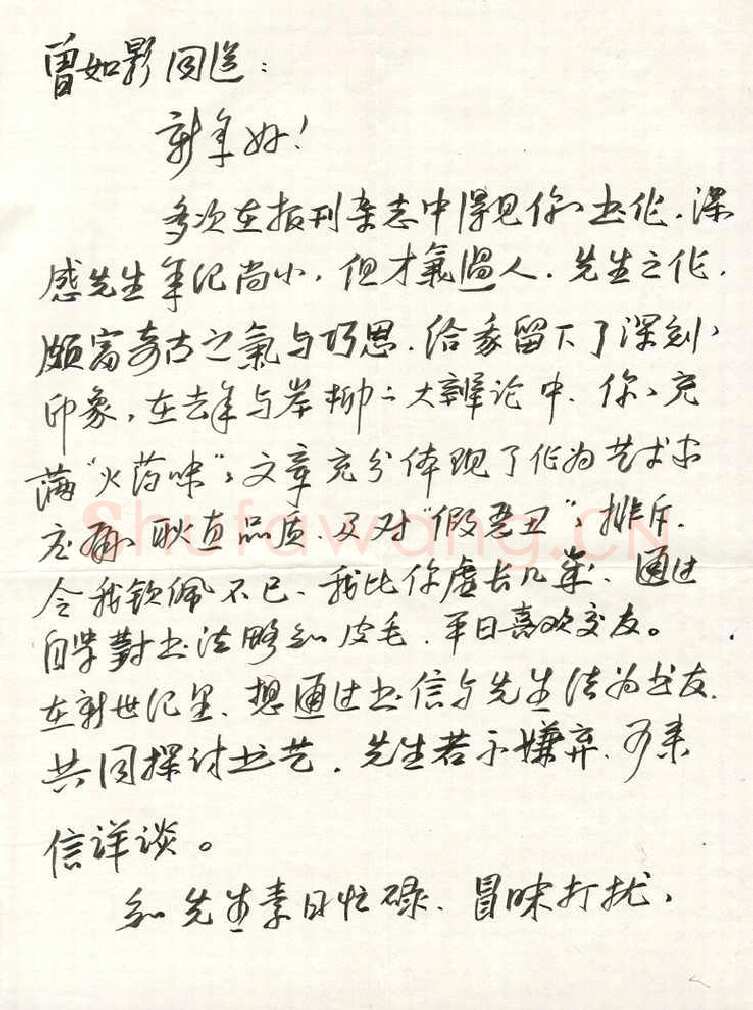 曾如影同道：
新年好！
多次在报刊杂志中得见你、书作，深
感先生年纪尚小，但才氣過人．先生之作，
颇富奇古之氣与巧思．给我留下了深刻、
印象，在去年与岑柳二大辩论中．你、充
满“火药味”、文章充分体现了作为艺术家
应有、耿直品质．及对“假恶丑”、排斥．
令我钦佩不已、我比你虚长几岁、通过
自学對书法略知皮毛，平日喜欢交友。
在新世纪里、想通过书信与先生结为书友．
共同探讨书艺．先生若不嫌弃、可来
信详谈。
知先生素日忙碌、冒昧打扰，
Shufawang.CN